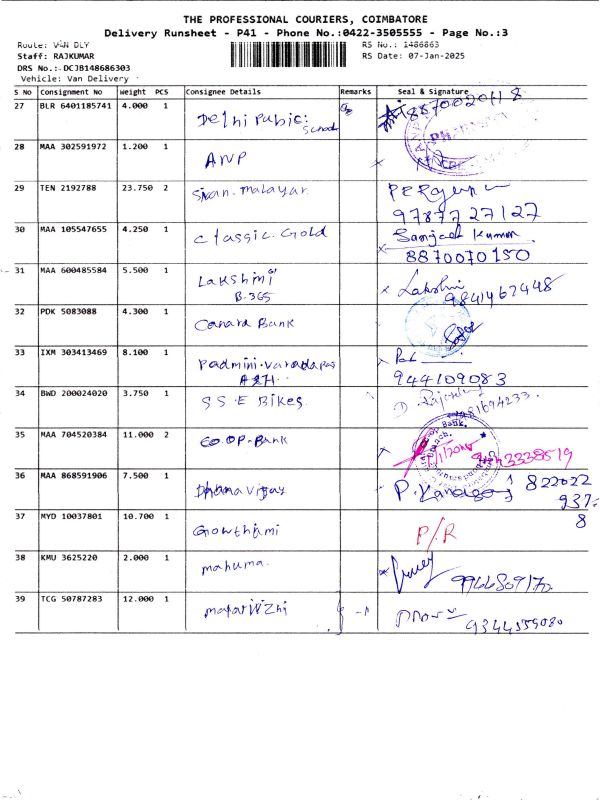 THE PROFESSIONAL COURIERS, COIMBATORE
Delivery Runsheet - P41 - Phone No.:0422-3505555 - Page No.:3
Route: VAN DLY
RS No.: 1486863
Staff: RAJKUMAR
RS Date: 07-Jan-2025
DRS No.:-DCJB148686303
Vehicle: Van Delivery
S No Consignment No Weight PCS Consignee Details Remarks Seal & Signature
27 BLR 6401185741 4.000 1 Delhi Pubic: School 8870020118
28 MAA 302591972 1.200 1 ANP
29 TEN 2192788 23.750 2 Sivan.malayar 9787727127
30 MAA 105547655 4.250 1 Classic.Gold Sanjeet Kumar
8870070150
31 MAA 600485584 5.500 1 Lakshmi Lakshmi
B.365 9841467448
32 PDK 5083088 4.300 1 Canara Bank
33 IXM 303413469 8.100 1 Padmini.Varadaraj
A271 944109083
34 BWD 200024020 3.750 1 S S.E Bikes
35 MAA 704520384 11.000 2 CO.OP-Bank
36 MAA 868591906 7.500 1 Dhanavijay 822022
937-
8
37 MYD 10037801 10.700 1 Gowthami P/R
38 KMU 3625220 2.000 1 mahuma.
39 TCG 50787283 12.000 1 9344559080